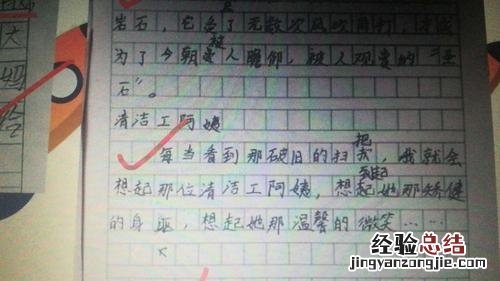 岩石，它了无数次风吹雨打，才成
被
为了今朝人瞻仰，被人观赏的“
石”。
清洁工阿姨
把
每当看到那破旧的扫，我就会
想起那位清洁工阿姨，想起她那矫健
的身躯，想起她那温馨的微笑……
大
妈
经验总结
jingyanzongjie.com